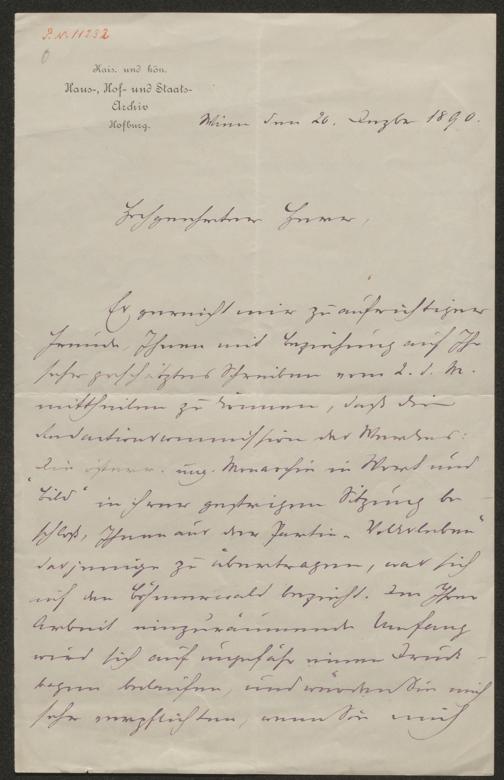 P. N. 11232
Kais. und kön.
Haus-, Hof- und Staats-
Archiv
Hofburg.
Wien den 20. Dezbr 1890.
Hochgeehrter Herr,
Es gereicht mir zu aufrichtiger
Freude, Ihnen mit Beziehung auf Ihr
sehr geschätztes Schreiben vom 2. d. M.
mittheilen zu können, daß die
Redactionscommission des Werkes:
Die österr. ung. Monarchie in Wort und
"Bild" in ihrer gestrigen Sitzung be-
schloß, Ihnen aus der Partie "Volksleben"
dasjenige zu übertragen, was sich
auf den Böhmerwald bezieht. Der Ihrer
Arbeit einzuräumende Umfang
wird sich auf ungefähr einen Druck-
bogen belaufen, und würden Sie mich
sehr verpflichten, wenn Sie mich